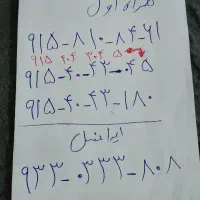 همراه اول
۹۱۵-۸۱۰-۸۴-۶۱
۹۱۵ ۴۰۴ ۳۰۴ ۵
۹۱۵-۴۰-۴۳-۰۴۵
۹۱۵-۴۰-۴۳-۱۸۰
ایرانسل
۹۳۳-۰۳۳۳-۸۰۸